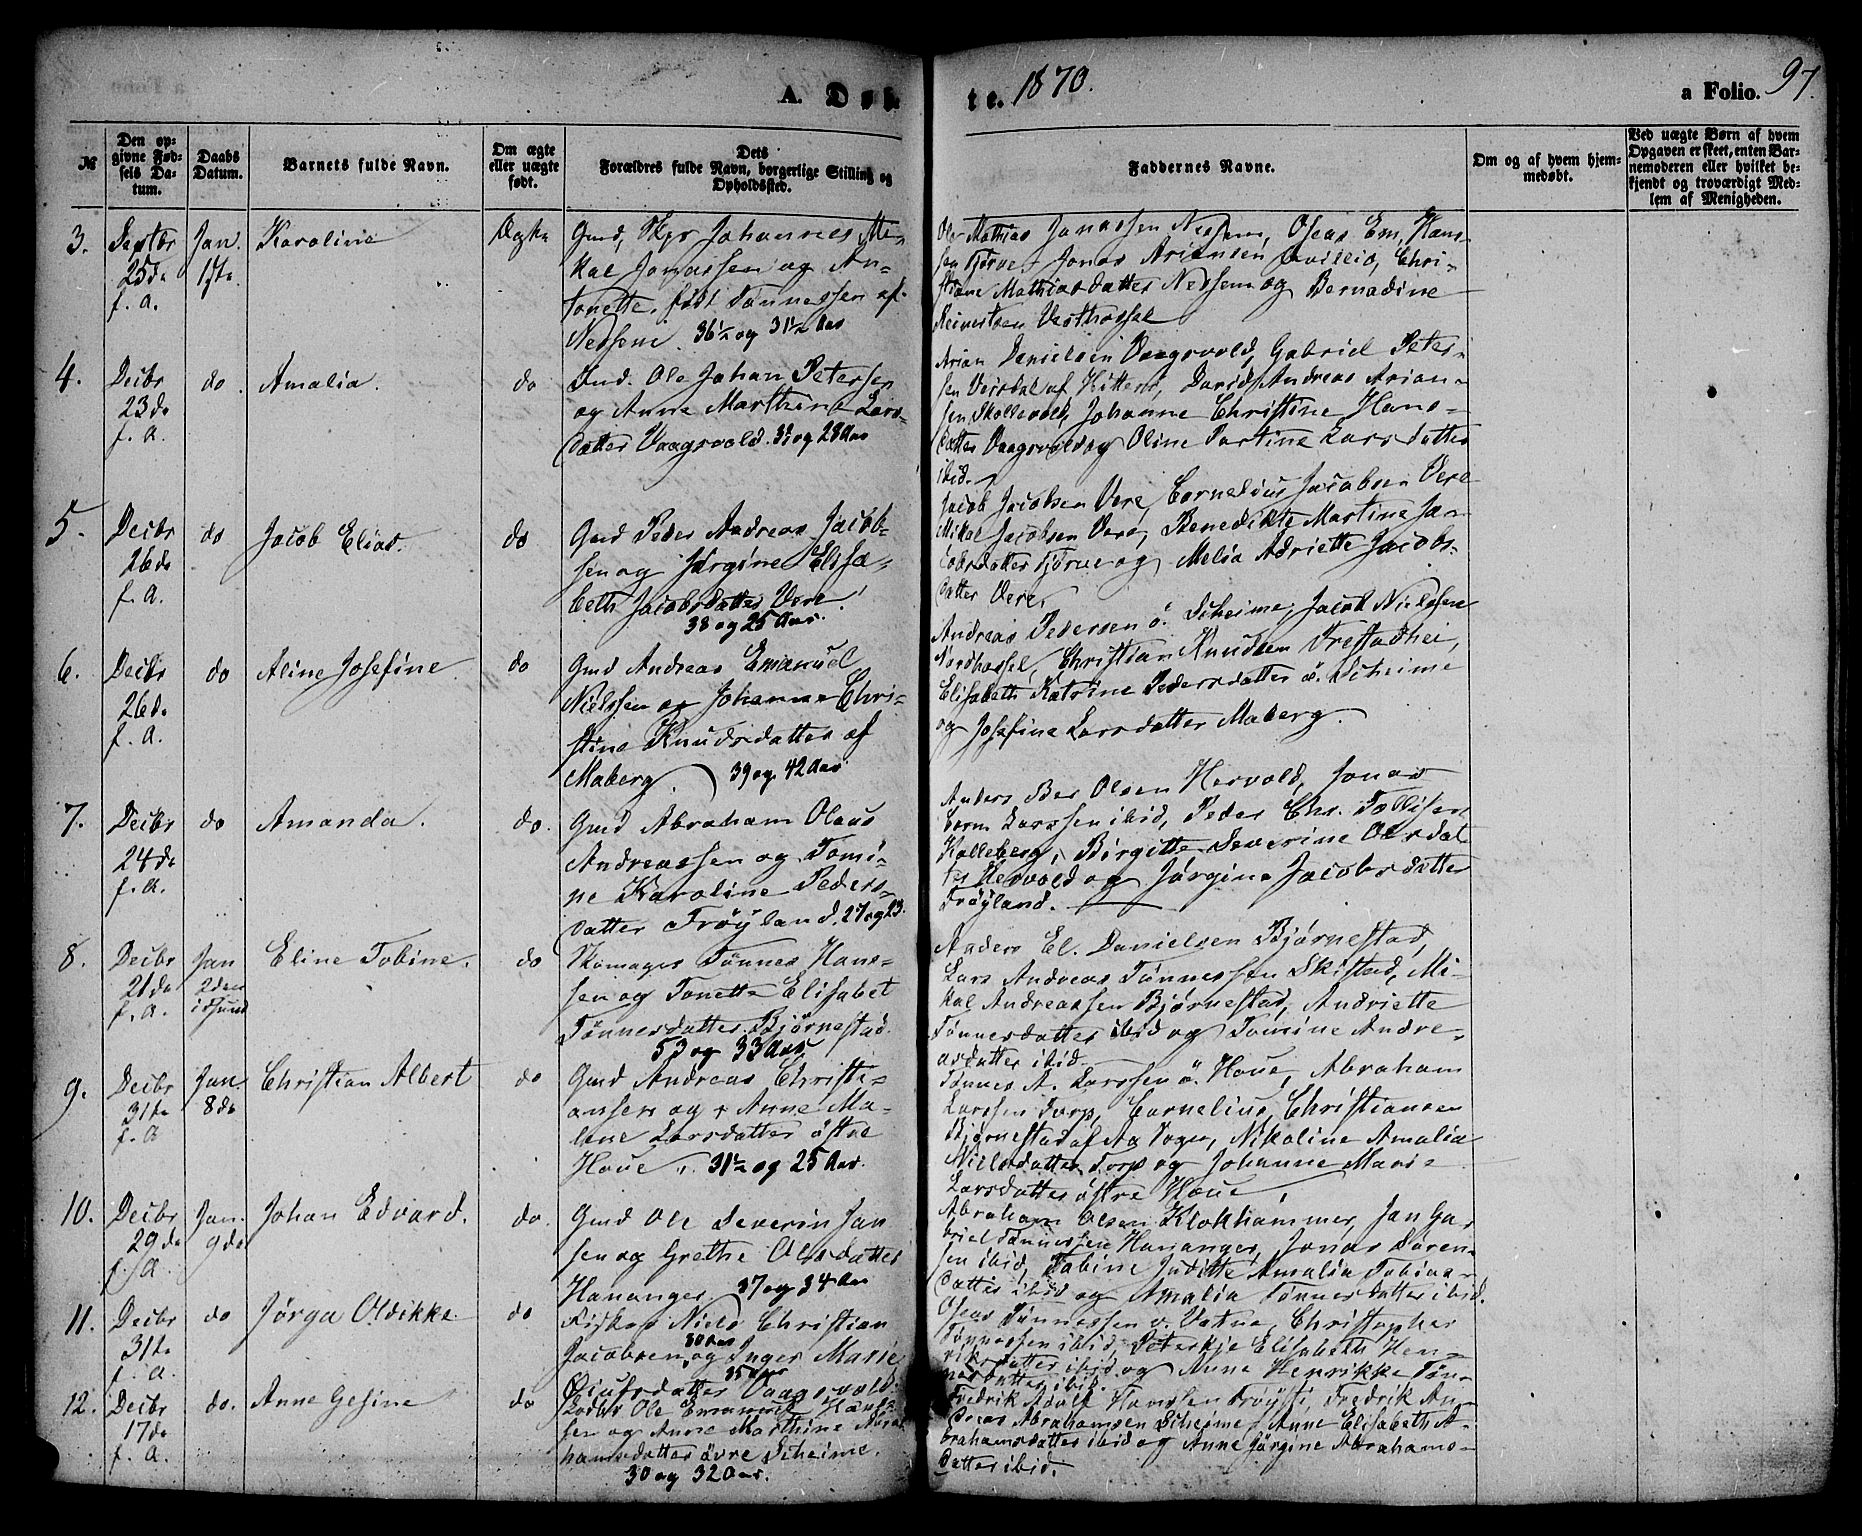 A. Døb
te. 1870.
a Folio. 97.
№
Den op-
givne Fød-
sels Da-
tum.
Daabs
Datum.
Barnets fulde Navn.
Om ægte
eller uægte
født.
Dets
Forældres fulde Navn, borgerlige Stilling og
Opholdssted.
Faddernes Navne.
Om og af hvem hjem-
medøbt.
Ved uægte Børn af hvem
Opgaven er skeet, enten Bar-
nemoderen eller hvilket be-
kjendt og troværdigt Med-
lem af Menigheden.
3.
25de
f. A.
Jan.
1ste
Karoline
Ægte
Gmd, Skpr Johannes Mi-
kal Jonassen og An-
tonette, født Tønnessen af
36½ og 31½ Aar
Ole Mathias Jonassen Nessem, Oseas Em. Han-
sen Tjørve, Jonas Ariansen
stiane Mathiasdatter Nessem og Bernadine
Reinertsen Vesthassel
4.
Decbr
23de
f. A.
do
Amalia.
do
Ind. Ole Johan Petersen
og Anne Marthine Lars-
datter Vaagsvold. og 28 Aar
Arian Danielsen Vaagsvold, Gabriel Peter-
sen af Hitterø, David Andreas Arian-
sen Skollevold, Johanne Christine Hans-
datter Vaagsvold og Oline Larsdatter
ibid.
5.
Decbr
26de
f. A.
do
Jacob Elias.
do
Gmd Peder Andreas Jacob-
sen og Jørgine Elisa-
beth Jacobsdatter Vere.
38 og 25 Aar.
Jacob Jacobsen Vere, Cornelius Jacobsen Vere
Mikal Jacobsen Vere, Benedikte Martine Ja-
cobsdatter Tjørve og Melia Adriette Jacobs-
datter Vere.
6.
Decbr
26de
f. A.
do
Aline Josefine
do
Gmd Andreas Emanuel
Nielssen og Johanne Chri-
stine Knudsdatter af
Maberg. 39 og 42 Aar
Andreas Pedersen ö. Scheime, Jacob Nielssen
Nordhassel, Christian Knudsen Frestadhei,
Elisabeth Katrine Pedersdatter ö. Scheime
og Josefine Larsdatter Maberg.
7.
Decbr
24de
f. A.
do
Amanda.
do.
Gmd Abraham Olaus
Andreassen og Tomi-
ne Karoline Peders-
datter Frøyland. 27 og 23.
Anders Ber Olsen Hervold, Jonas
Larssen ibid, Peder Chr. Tollisen
Kalleberg, Birgitte Severine Olsdat-
ter Hervold og Jørgine Jacobsdatter
Frøyland.
8.
Decbr
21de
f. A.
Jan
2den
i Sund
Eline Tobine.
do
Skomager Tønnes Hans-
sen og Tonette Elisabet
Tønnesdatter Bjørnestad.
53 og 33 Aar
Anders El. Danielsen Bjørnestad,
Lars Andreas Tønnessen Skistad, Mi-
kal Andreassen Bjørnestad, Andriette
Tønnesdatter ibid og Tomine Andre-
asdatter ibid.
9.
Decbr
31te
f. A
Jan
8de
Christian Albert
do
Gmd Andreas Christi-
ansen og Anne Ma-
lene Larsdatter østre
Houe. 31½ og 25 Aar.
Tønnes A. Larssen ö. Houe, Abraham
Larssen Torp, Cornelius Christiansen
Bjørnestad af Aa Sogn, Nikoline Amalia
Nielsdatter Torp og Johanne Marie
Larsdatter østre Houe.
10.
Decbr
29de
f. A.
Jan.
9de
Johan Edvard.
do.
Gmd Ole Severin Jan
sen og Grethe Olsdatter
Hananger. 37 og 34 Aar
Abraham Olsen Klokhammer, Jan Ga-
briel Tønnessen Hananger, Jonas Søren-
sen ibid, Tobine Juditte Amalia Tobias-
datter ibid og Amalia Tønnesdatter ibid.
11.
Decbr
31te
f. A.
do
Jørga Oldikke
do
Fisker Niels Christian
30 Aar
Jacobsen og Inger Marie
35 Aar
Vaagsvold.
Oseas Tønnessen v. Vatne, Christopher
Tønnessen ibid, Peterkje Elisabeth Hen-
riksdatter ibid og Anne Henrikke Tøn-
nesdatter ibid.
12.
Decbr
17de
f. A.
do.
Anne Gesine
do
Ole Emanuel Hans-
sen og Anne Marthine Abra-
hamsdatter övre Scheime.
30 og 32 Aar.
Fredrik Adolf Hanssen Frøysti, Fredrik An-
dreas Abrahamsen Scheime, Anne Elisabeth A-
brahamsdatter ibid og Anne Jørgine Abrahams-
datter ibid.